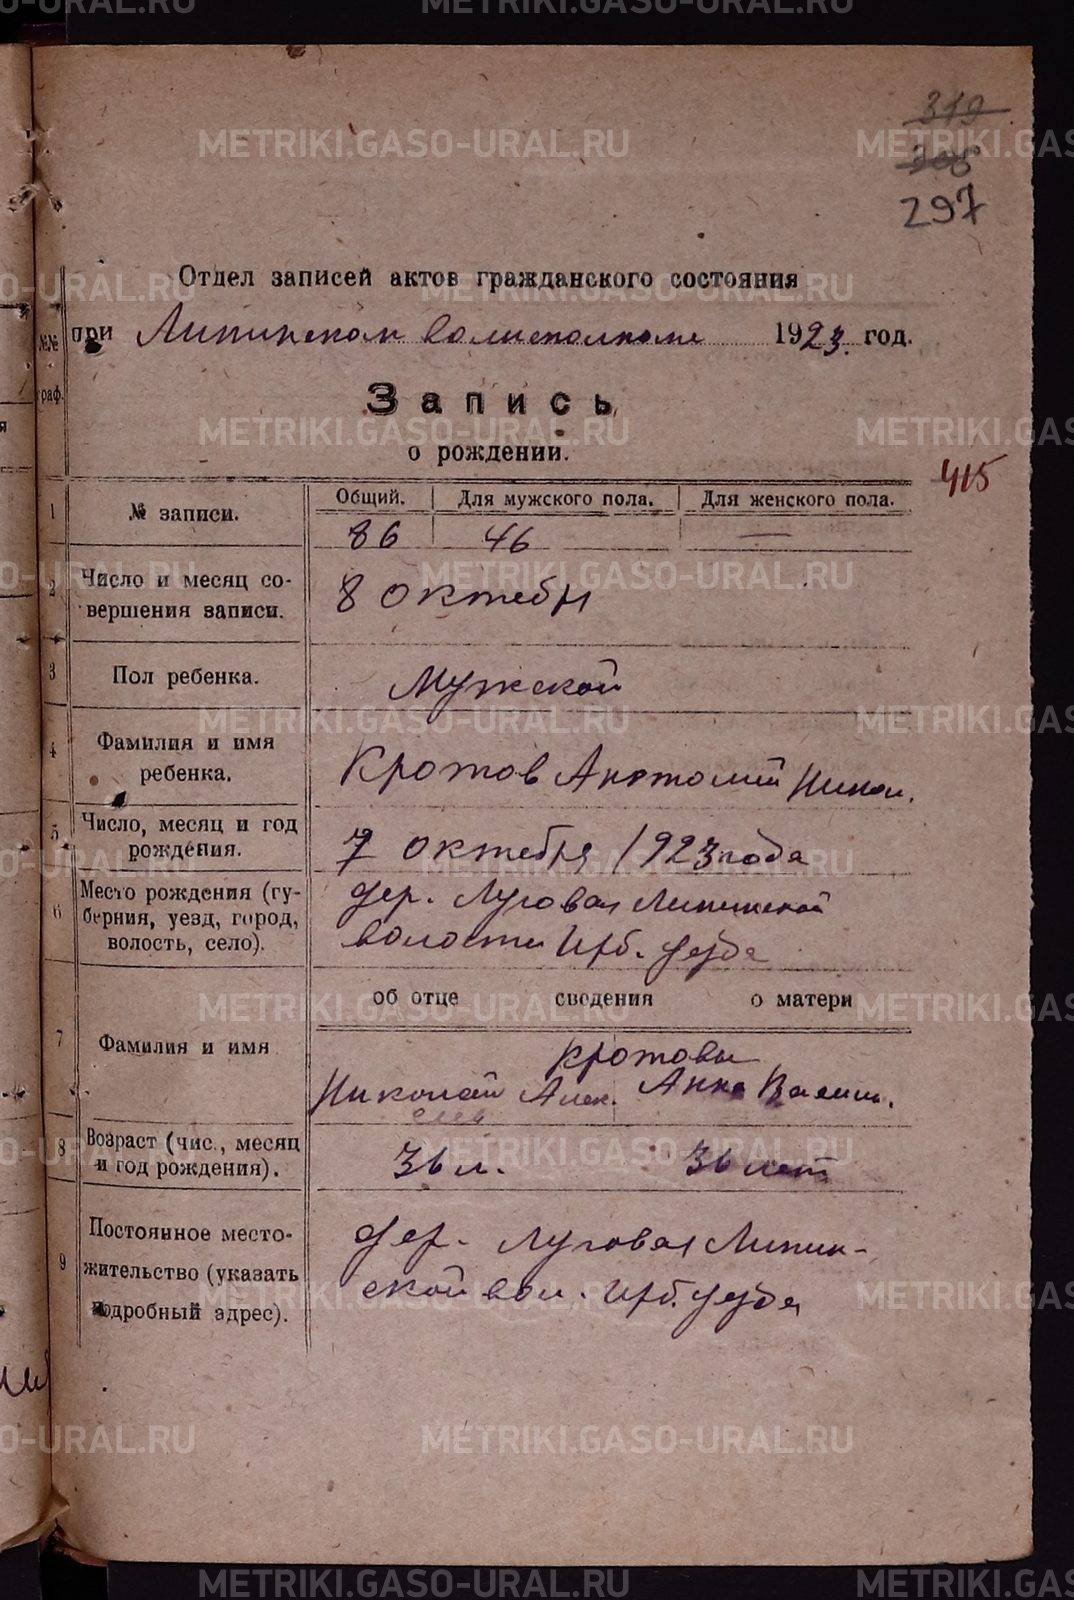 319
305
297
Отдел записей актов гражданского состояния
при Липинском волисполкоме 1923 год.
№№ граф.
Запись
о рождении.
415
1 № записи. Общий. Для мужского пола. Для женского пола.
86 46 —
2 Число и месяц со-
вершения записи. 8 Октебры
3 Пол ребенка. Мужской
4 Фамилия и имя
ребенка. Кротов Анатолий Никол.
5 Число, месяц и год
рождения. 7 октебря 1923 года
6 Место рождения (гу-
берния, уезд, город,
волость, село). дер. Луговая Липинской
волости Ирб. уезда
об отце сведения о матери
7 Фамилия и имя Кротовы
Николай Алек. Анна Васил.
8 Возраст (чис., месяц
и год рождения). 36 л. 36 лет
9 Постоянное место-
жительство (указать
подробный адрес). дер. Луговая Липин-
ской вол. Ирб. уезда
METRIKI.GASO-URAL.RU